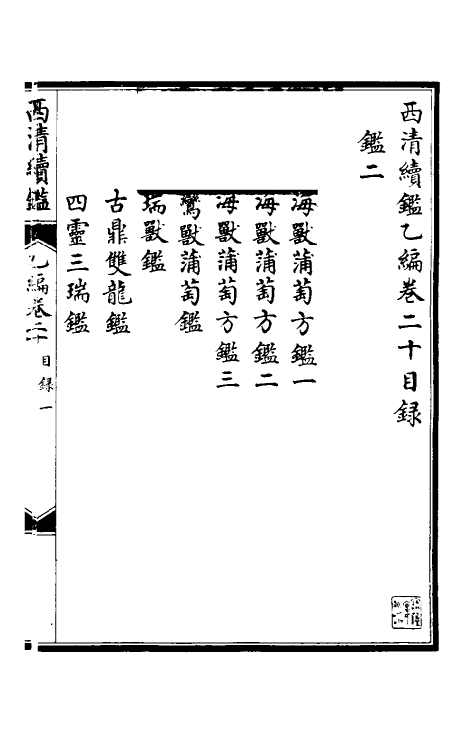 西清續鑑乙編卷二十目録
鑑二
海獸蒲萄方鑑一
海獸蒲萄方鑑二
海獸蒲萄方鑑三
鸞獸蒲萄鑑
瑞獸鑑
古鼎雙龍鑑
四靈三瑞鑑
西清續鑑 乙編卷二十 目録 一